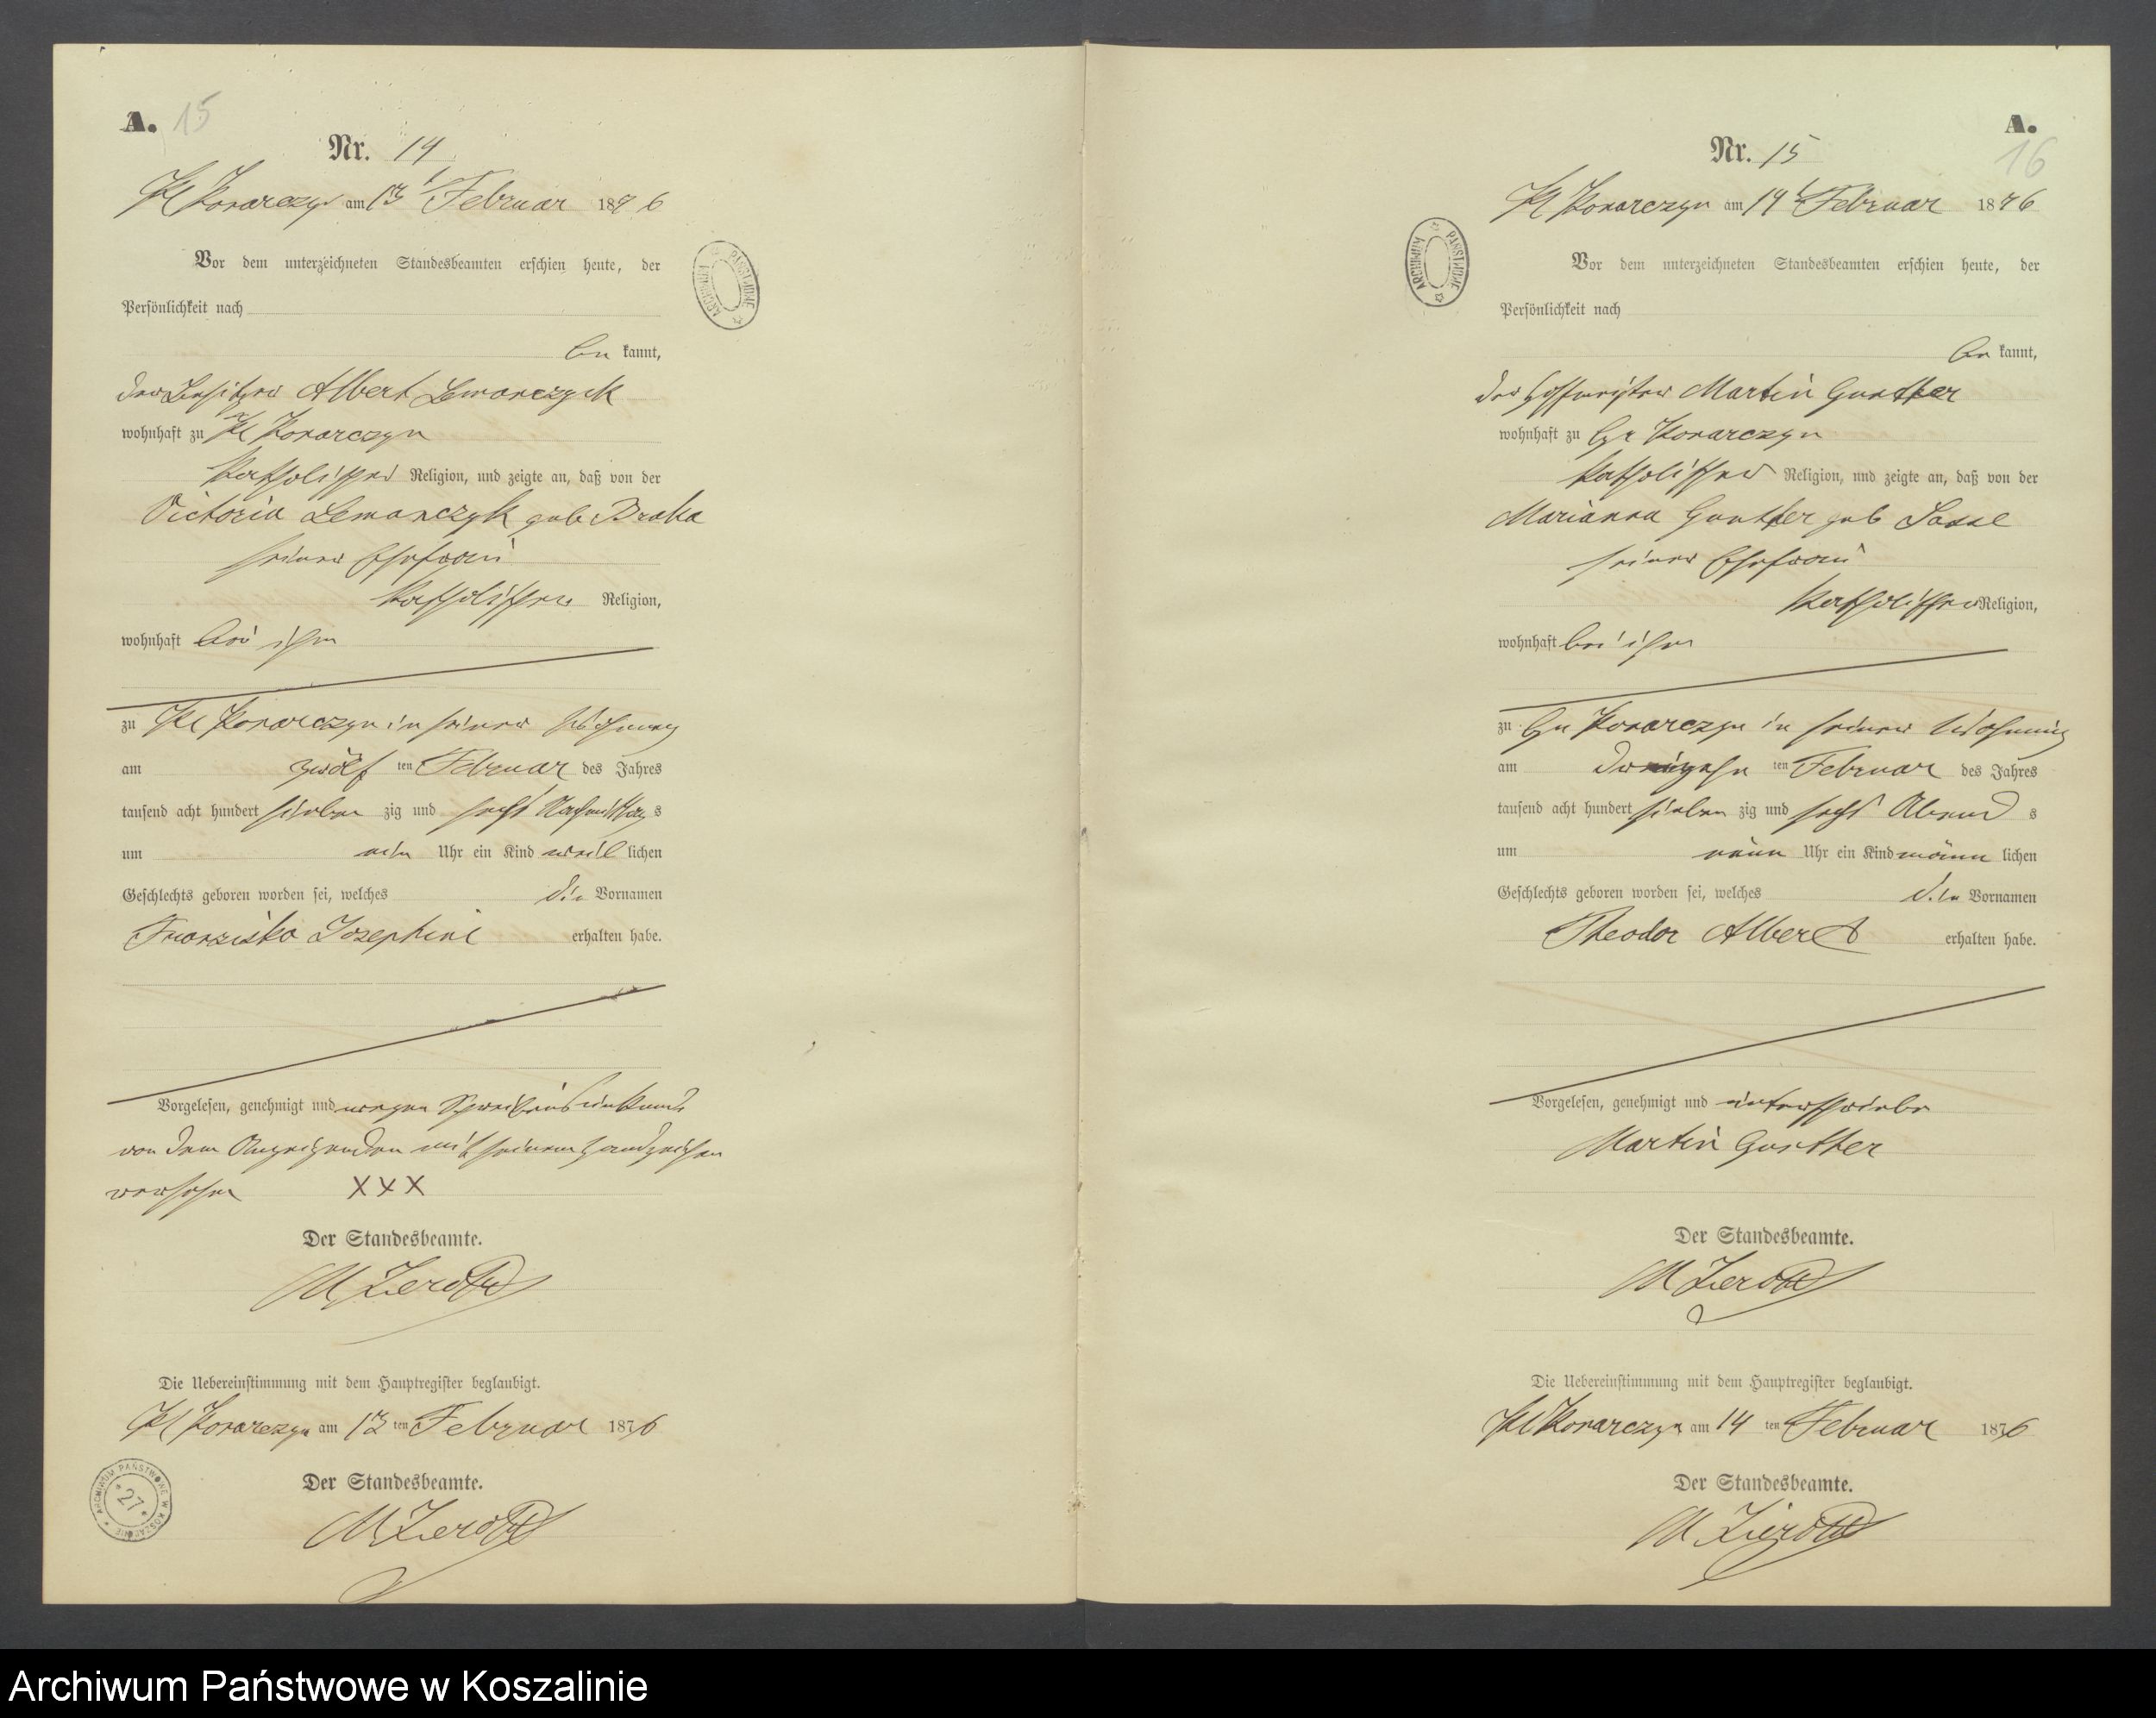 A. 15
Nr. 14
Kl Konarczyn am 13t Februar 1876
Vor dem unterzeichneten Standesbeamten erschien heute, der
Persönlichkeit nach
be kannt,
der Besitzer Albert Lemanczyk
wohnhaft zu Kl Konarczyn
katholischer Religion, und zeigte an, daß von der
Victoria Lemanczyk geb
seiner Ehefrau
katholischer Religion,
wohnhaft bei ihm
zu Kl Konarczyn in seiner Wohnung
am zwölf ten Februar des Jahres
tausend acht hundert sieben zig und sechs Nachmittag s
um ein Uhr ein Kind weib lichen
Geschlechts geboren worden sei, welches die Vornamen
Franziska Josephine erhalten habe.
Vorgelesen, genehmigt und wegen Schreibensunkunde
von dem Anzeigenden mit seinem Handzeichen
versehen XXX
Der Standesbeamte.
Die Uebereinstimmung mit dem Hauptregister beglaubigt.
Kl Konarczyn am 13 ten Februar 1876
Der Standesbeamte.
ARCHIWUM PAŃSTWOWE W KOSZALINIE
27
A.
16
Nr. 15
Kl Konarczyn am 14t Februar 1876
ARCHIWUM PAŃSTWOWE
Vor dem unterzeichneten Standesbeamten erschien heute, der
Persönlichkeit nach
be kannt,
der Hofmeister Martin Gunther
wohnhaft zu Gr Konarczyn
katholischer Religion, und zeigte an, daß von der
Marianna Gunther geb
seiner Ehefrau
katholischer Religion,
wohnhaft bei ihm
zu Gr Konarczyn in seiner Wohnung
am dreizehn ten Februar des Jahres
tausend acht hundert sieben zig und sechs Abend s
um neun Uhr ein Kind männ lichen
Geschlechts geboren worden sei, welches die Vornamen
Theodor Albert erhalten habe.
Vorgelesen, genehmigt und unterschrieben
Martin Gunther
Der Standesbeamte.
Die Uebereinstimmung mit dem Hauptregister beglaubigt.
Kl Konarczyn am 14 ten Februar 1876
Der Standesbeamte.
Archiwum Państwowe w Koszalinie